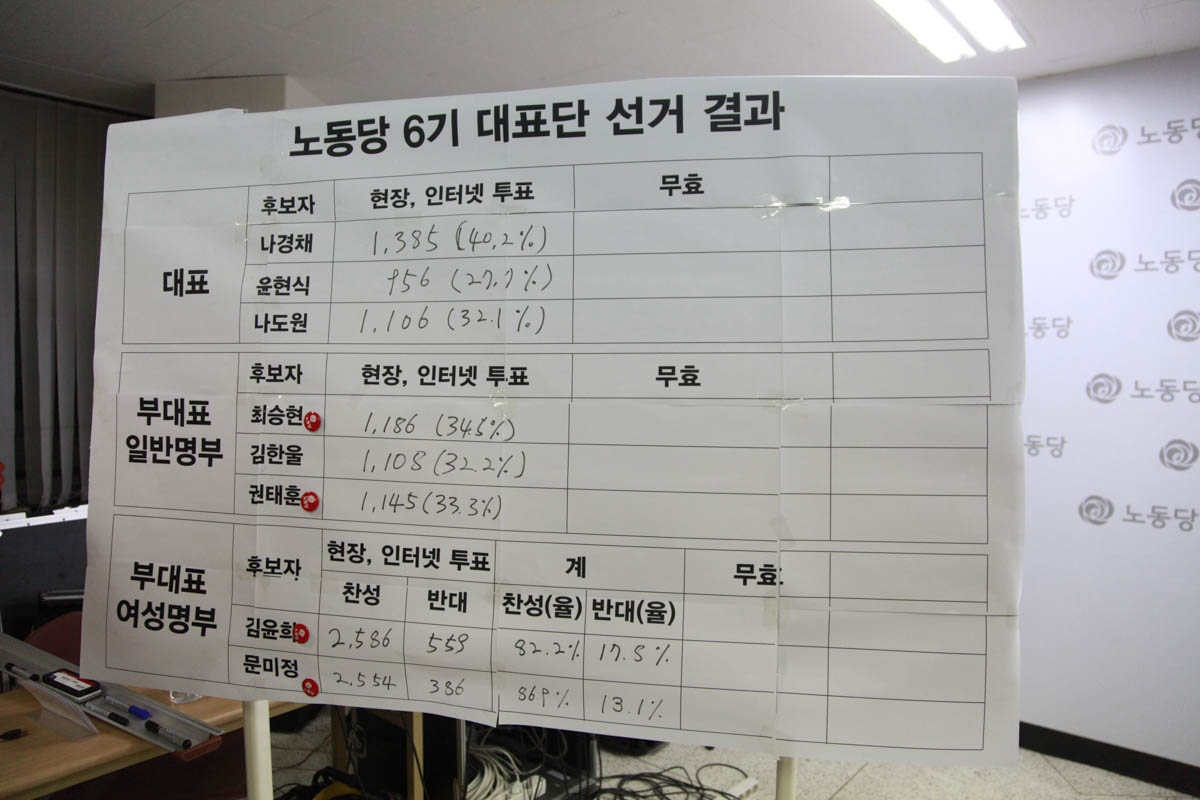 노동당 6기 대표단 선거 결과
대표 후보자 현장, 인터넷 투표 무효
나경채 1,385 (40.2%)
윤현식 956 (27.7%)
나도원 1,106 (32.1%)
부대표 일반명부 후보자 현장, 인터넷 투표 무효
최승현 1,186 (34.5%)
김한울 1,108 (32.2%)
권태훈 1,145 (33.3%)
부대표 여성명부 후보자 현장, 인터넷 투표 계 무효
찬성 반대 찬성(율) 반대(율)
김윤희 2,586 559 82.2% 17.8%
문미정 2,554 386 86.9% 13.1%
노동당
노동당
노동당
노동당
노동당
노동당
노동당